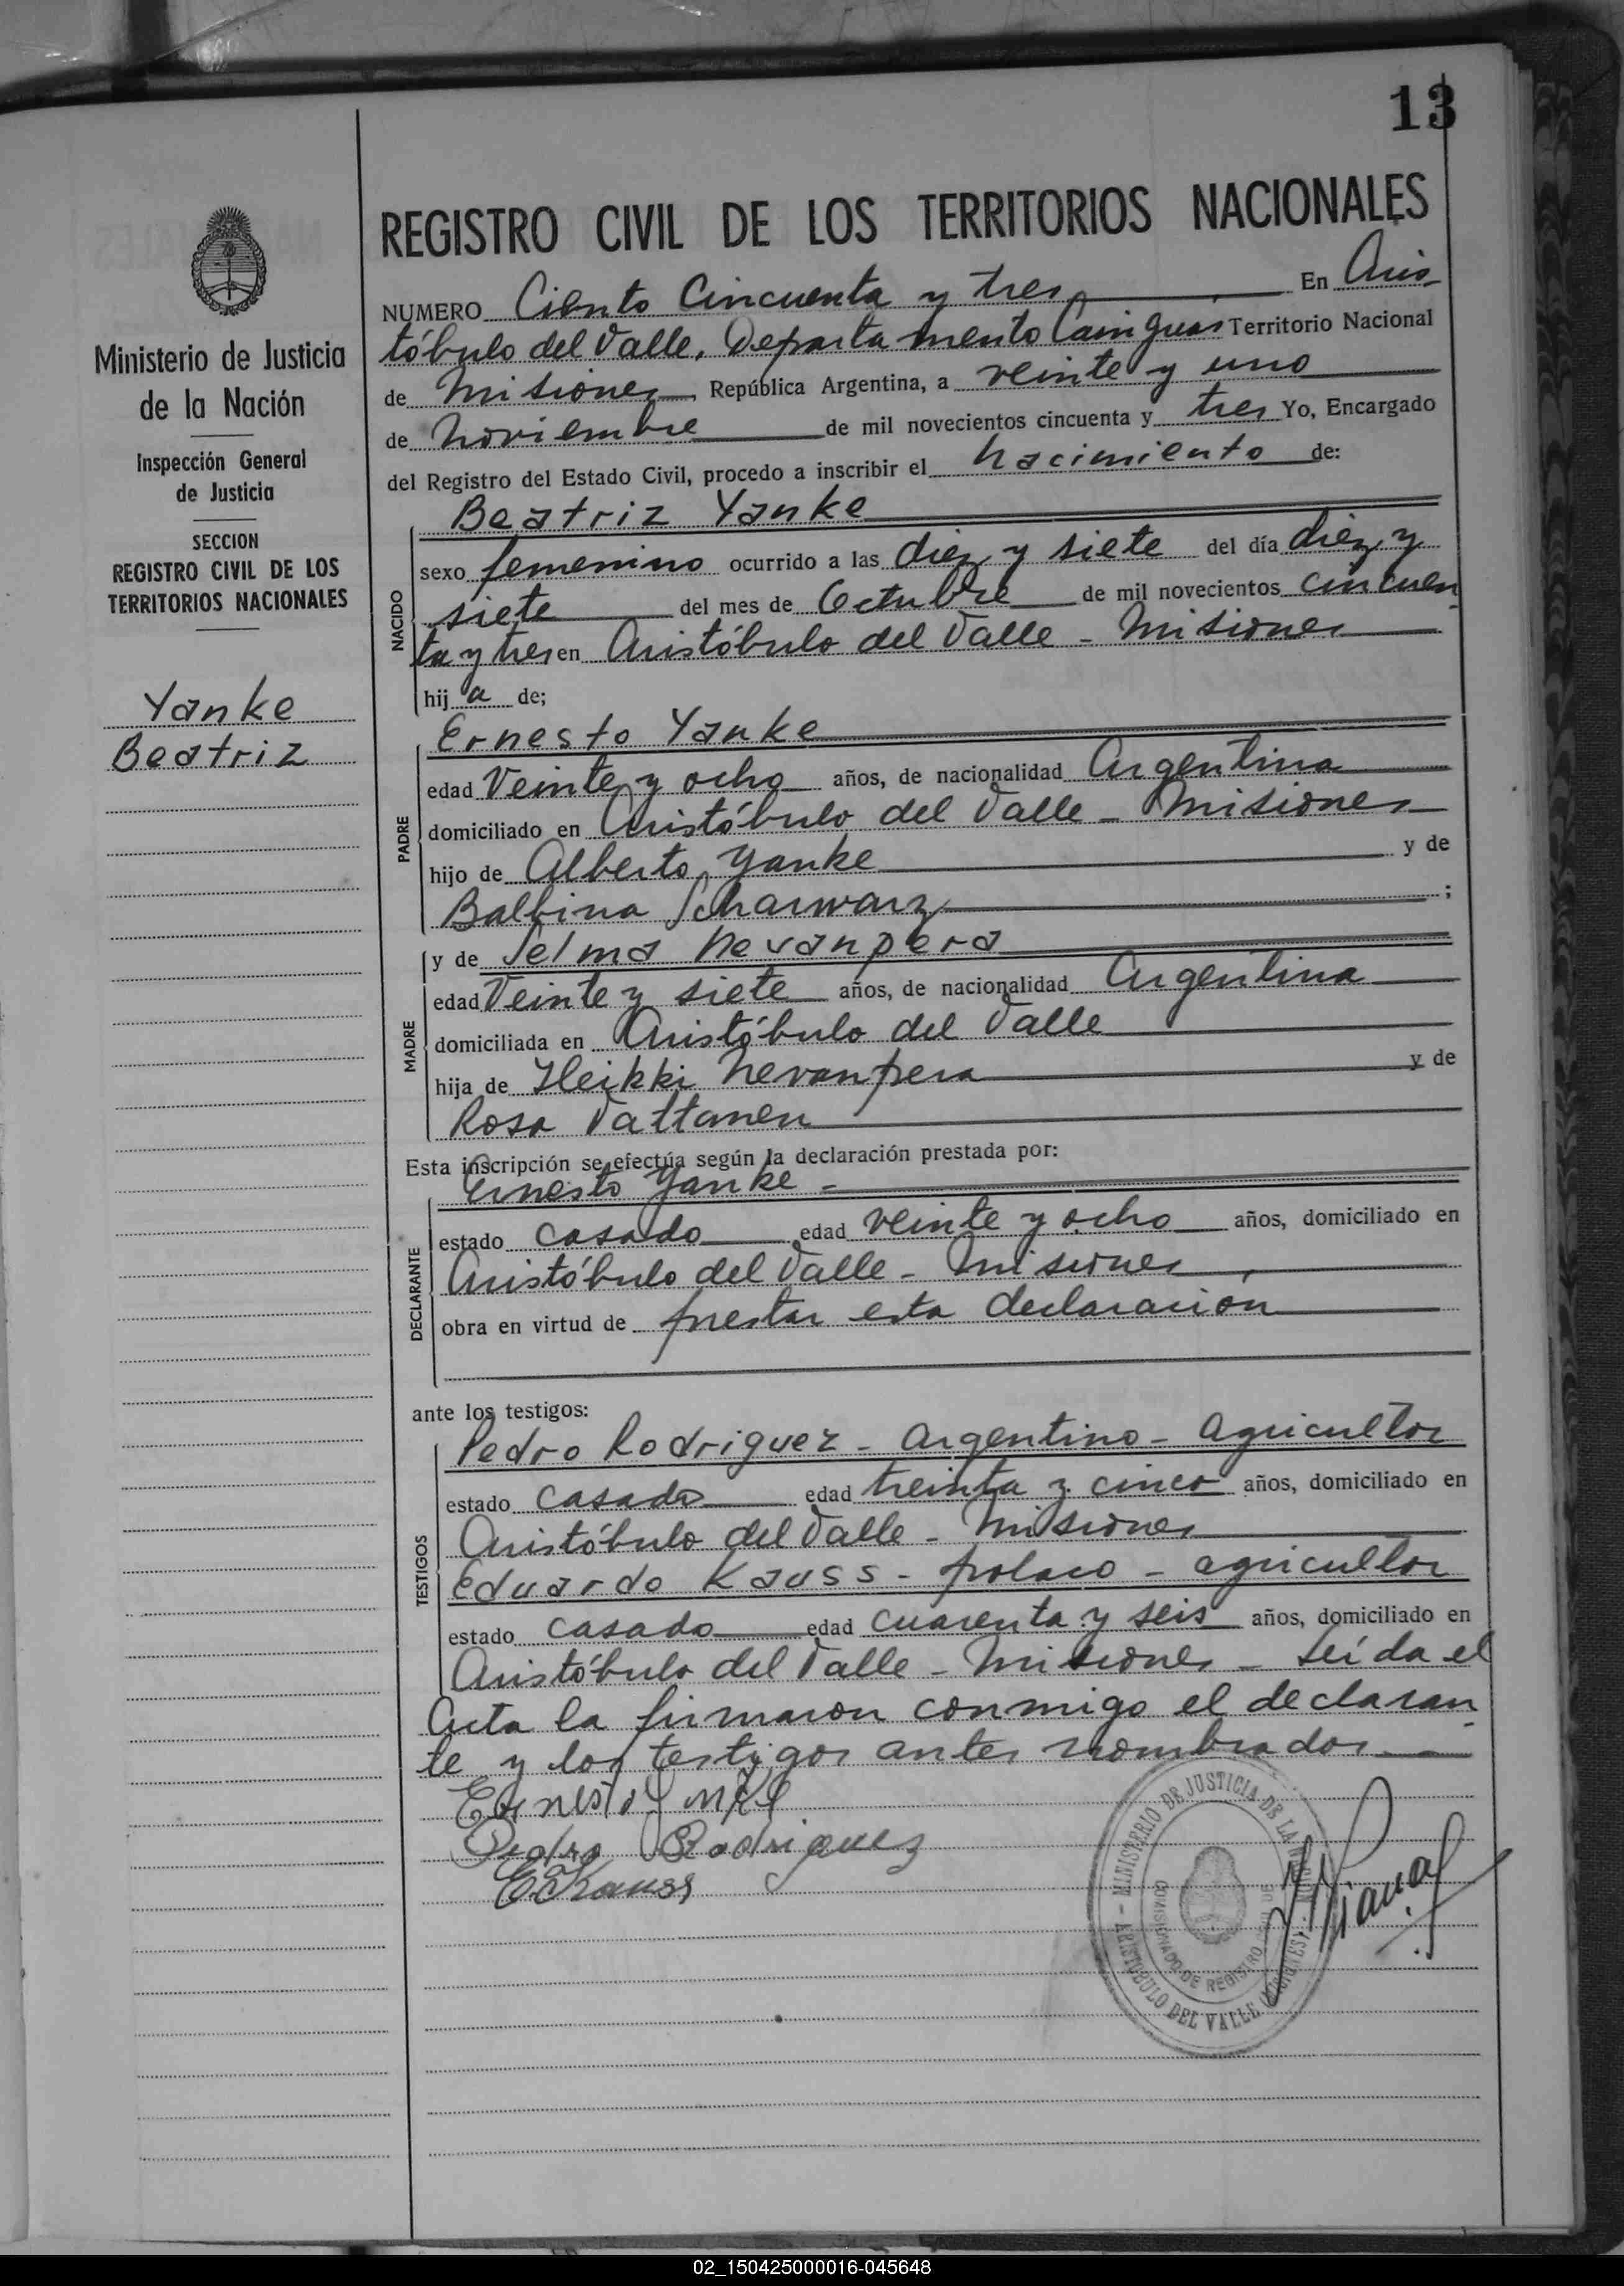 13
REGISTRO CIVIL DE LOS TERRITORIOS NACIONALES
Ministerio de Justicia
de la Nación
Inspección General
de Justicia
SECCION
REGISTRO CIVIL DE LOS
TERRITORIOS NACIONALES
Yanke
Beatriz
NUMERO Ciento Cincuenta y tres En Aris-
tóbulo del Valle, Departamento Cainguas Territorio Nacional
de Misiones, República Argentina, a veinte y uno
de Noviembre de mil novecientos cincuenta y tres Yo, Encargado
del Registro del Estado Civil, procedo a inscribir el nacimiento de:
NACIDO
Beatriz Yanke
sexo femenino ocurrido a las diez y siete del día diez y
siete del mes de Octubre de mil novecientos cincuen
ta y tres en Aristóbulo del Valle - Misiones
hij a de;
PADRE
Ernesto Yanke
edad Veinte y ocho años, de nacionalidad Argentina
domiciliado en Aristóbulo del Valle - Misiones
hijo de Alberto Yanke y de
Balbina Scharwarz ;
MADRE
y de Selma Nevanpera
edad Veinte y siete años, de nacionalidad Argentina
domiciliada en Aristóbulo del Valle
hija de Heikki Nevanpera y de
Rosa Vattanen
Esta inscripción se efectúa según la declaración prestada por:
DECLARANTE
Ernesto Yanke -
estado casado edad veinte y ocho años, domiciliado en
Aristóbulo del Valle - Misiones,
obra en virtud de prestar esta declaracion
ante los testigos:
TESTIGOS
Pedro Rodriguez - argentino - agricultor
estado casado edad treinta y cinco años, domiciliado en
Aristóbulo del Valle - Misiones
Eduardo Kauss - polaco - agricultor
estado casado edad cuarenta y seis años, domiciliado en
Aristóbulo del Valle - Misiones - Leída el
Acta la firmaron conmigo el declaran
te y los testigos antes nombrados
Ernesto Yanke
Pedro Rodriguez
E. Kauss
- MINISTERIO DE JUSTICIA DE LA NACION -
ARISTOBULO DEL VALLE (MISIONES)
DE REGISTRO
02_150425000016-045648